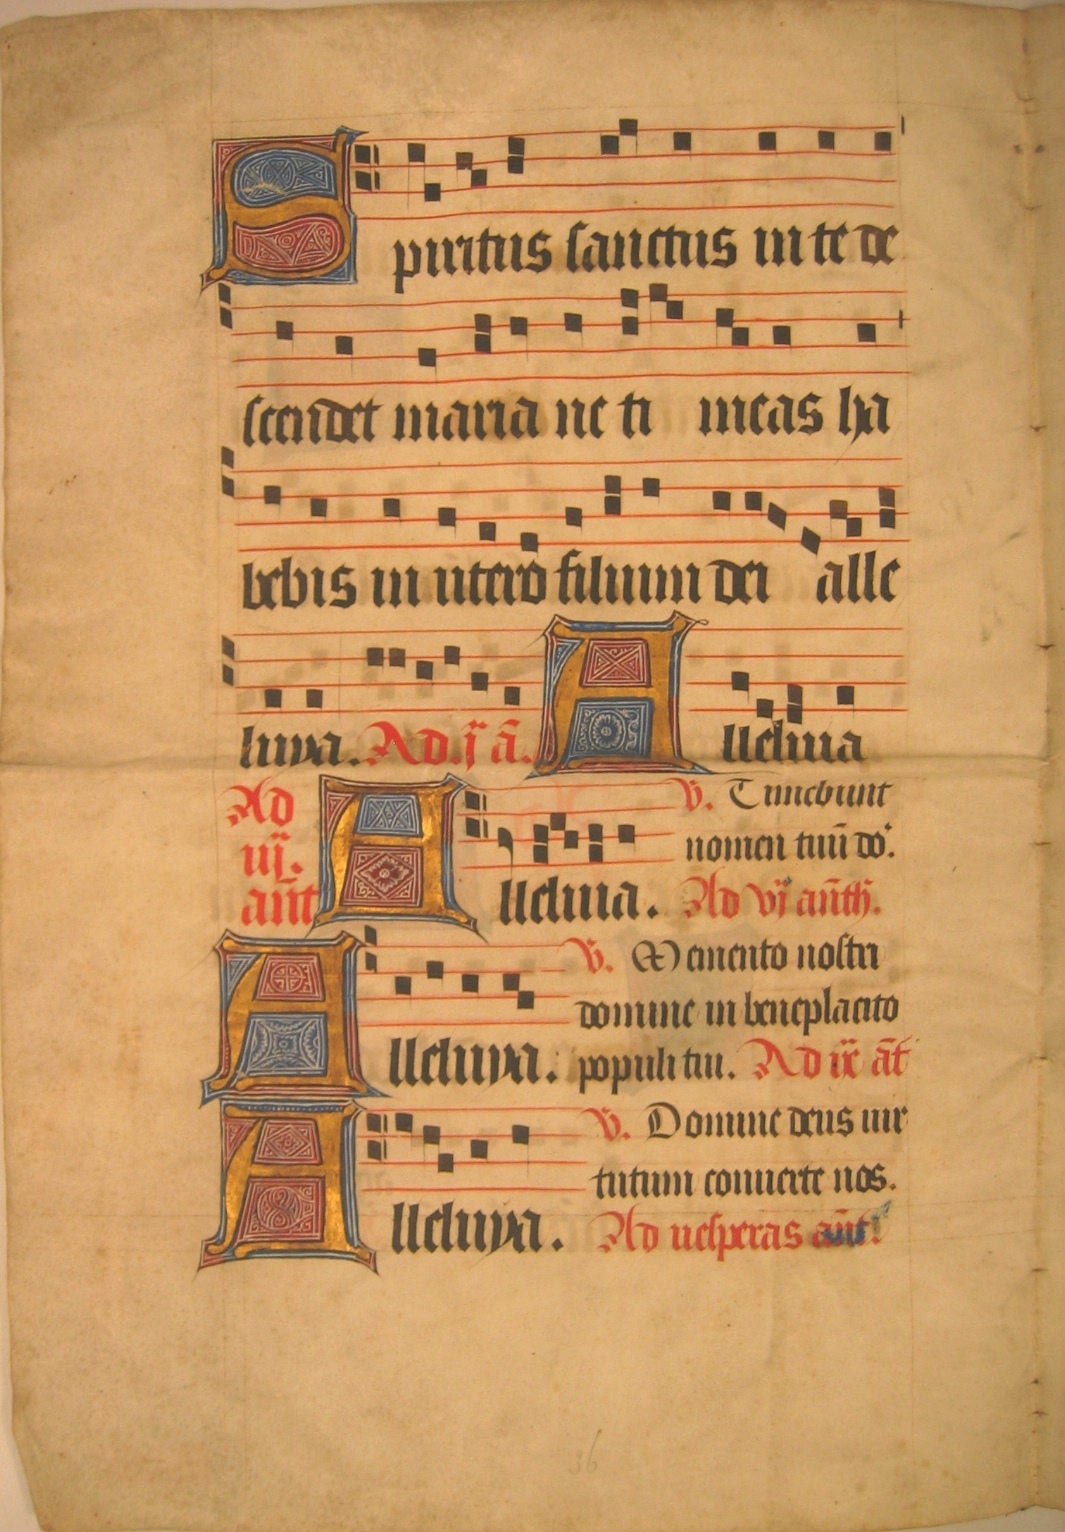 Spiritus sanctus in te de
scendet maria ne ti meas ha
bebis in utero filium dei alle
luya. Ad .iͣ. ã. Alleluia
Ad iijͣ. ant̄ Alleluia. V̄. Timebunt nomen tuū dō.
Ad vjͣ anth̄.
Alleluya. V̄. Memento nostri domine in beneplacito populi tui. Ad ixͣ āt
Alleluya. V̄. Domine deus uirtutum conuerte nos.
Ad uesperas ant̄.
36